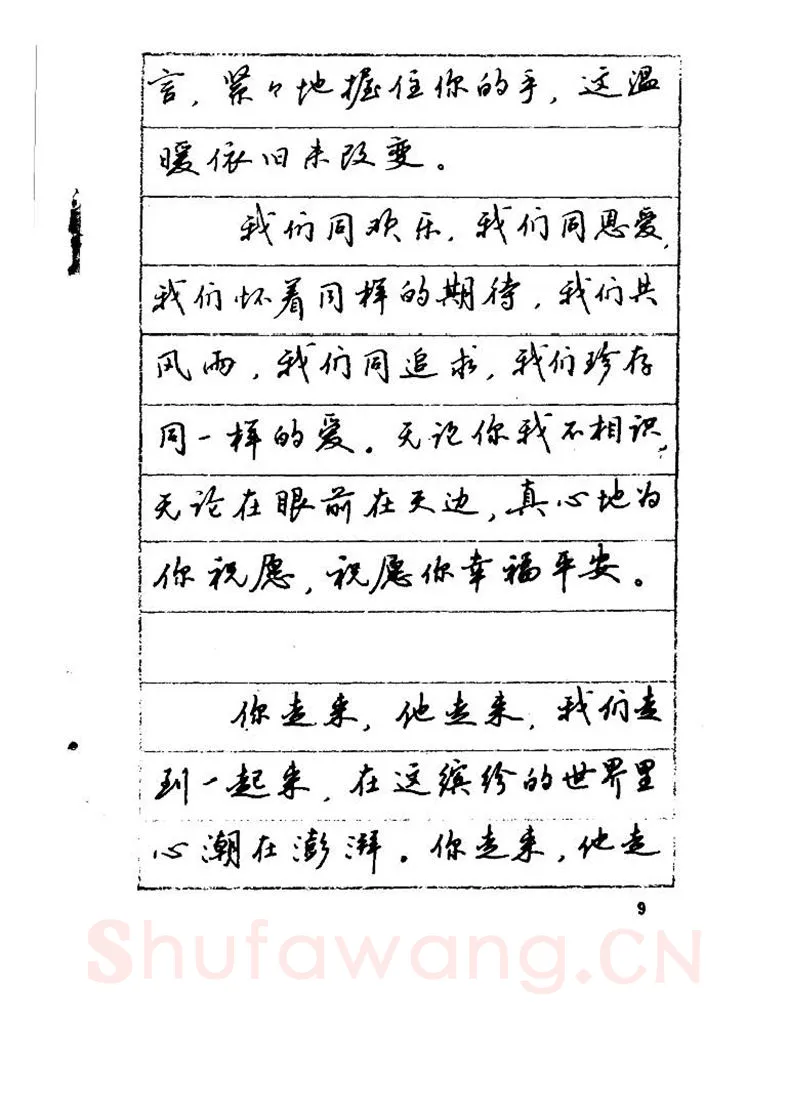 言，紧々地握住你的手，这温
暖依旧未改变。
我们同欢乐，我们同恩爱，
我们怀着同样的期待，我们共
风雨，我们同追求，我们珍存
同一样的爱。无论你我不相识，
无论在眼前在天边，真心地为
你祝愿，祝愿你幸福平安。
你走来，他走来，我们走
到一起来，在这缤纷的世界里
心潮在澎湃。你走来，他走
9
Shufawang.CN